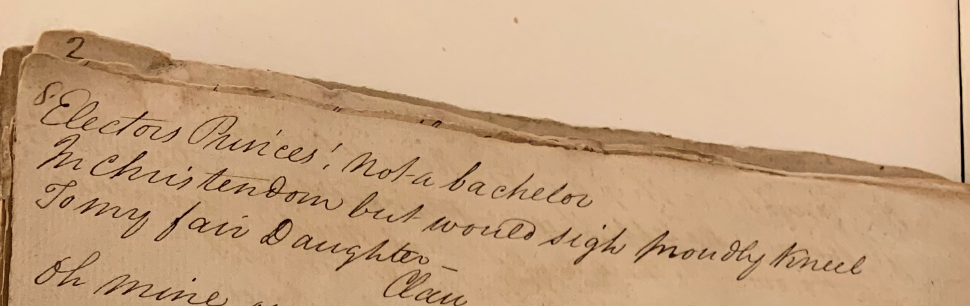 2
8.
Electors Princes! not a bachelor
In Christendom but would sigh proudly Kneel
To my fair Daughter
Clau
Oh mine